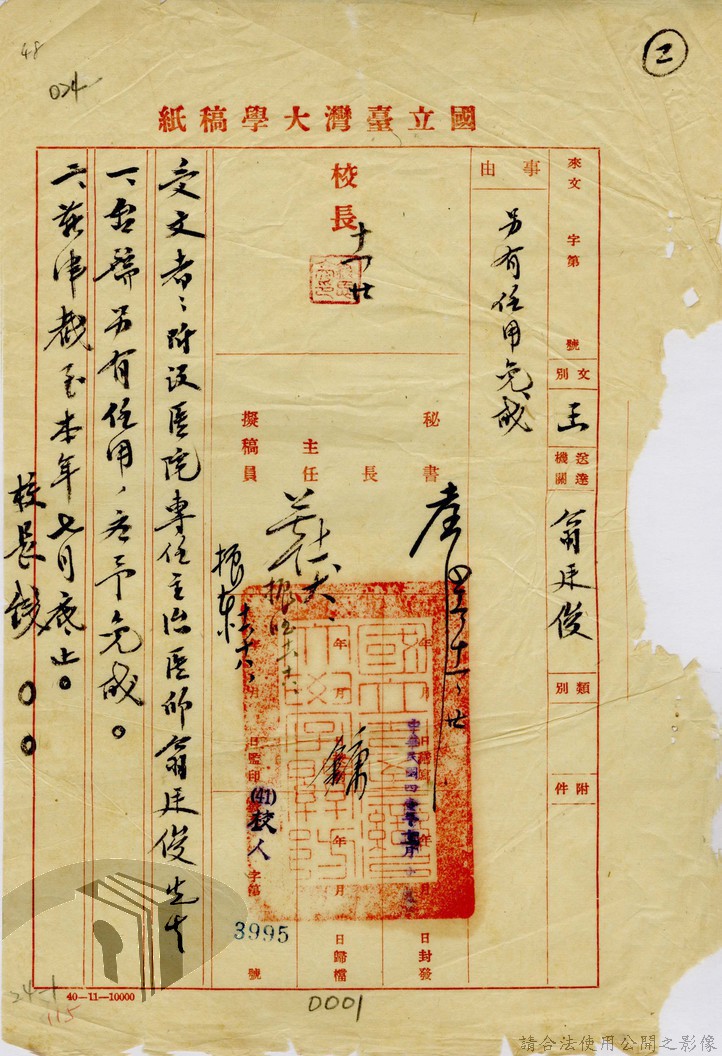 48
024
2
國立臺灣大學稿紙
來文 字第 號
文別
送達機關
翁廷俊
類別
附件
事由
另有任用免職
校長
十一 廿
秘書長
主任
擬稿員
振東
年 月 日繕寫
年 月 日監印
中華民國四
(41)校人 字第 3995 號
年 月 日封發
年 月 日歸檔
受文者:附設医院專任主治医師翁廷俊先生
一、台端另有任用,應予免職。
二、薪津截至本年七月底止。
校長錢○○
40—11—10000
24-1
115
0001
請合法使用公開之影像